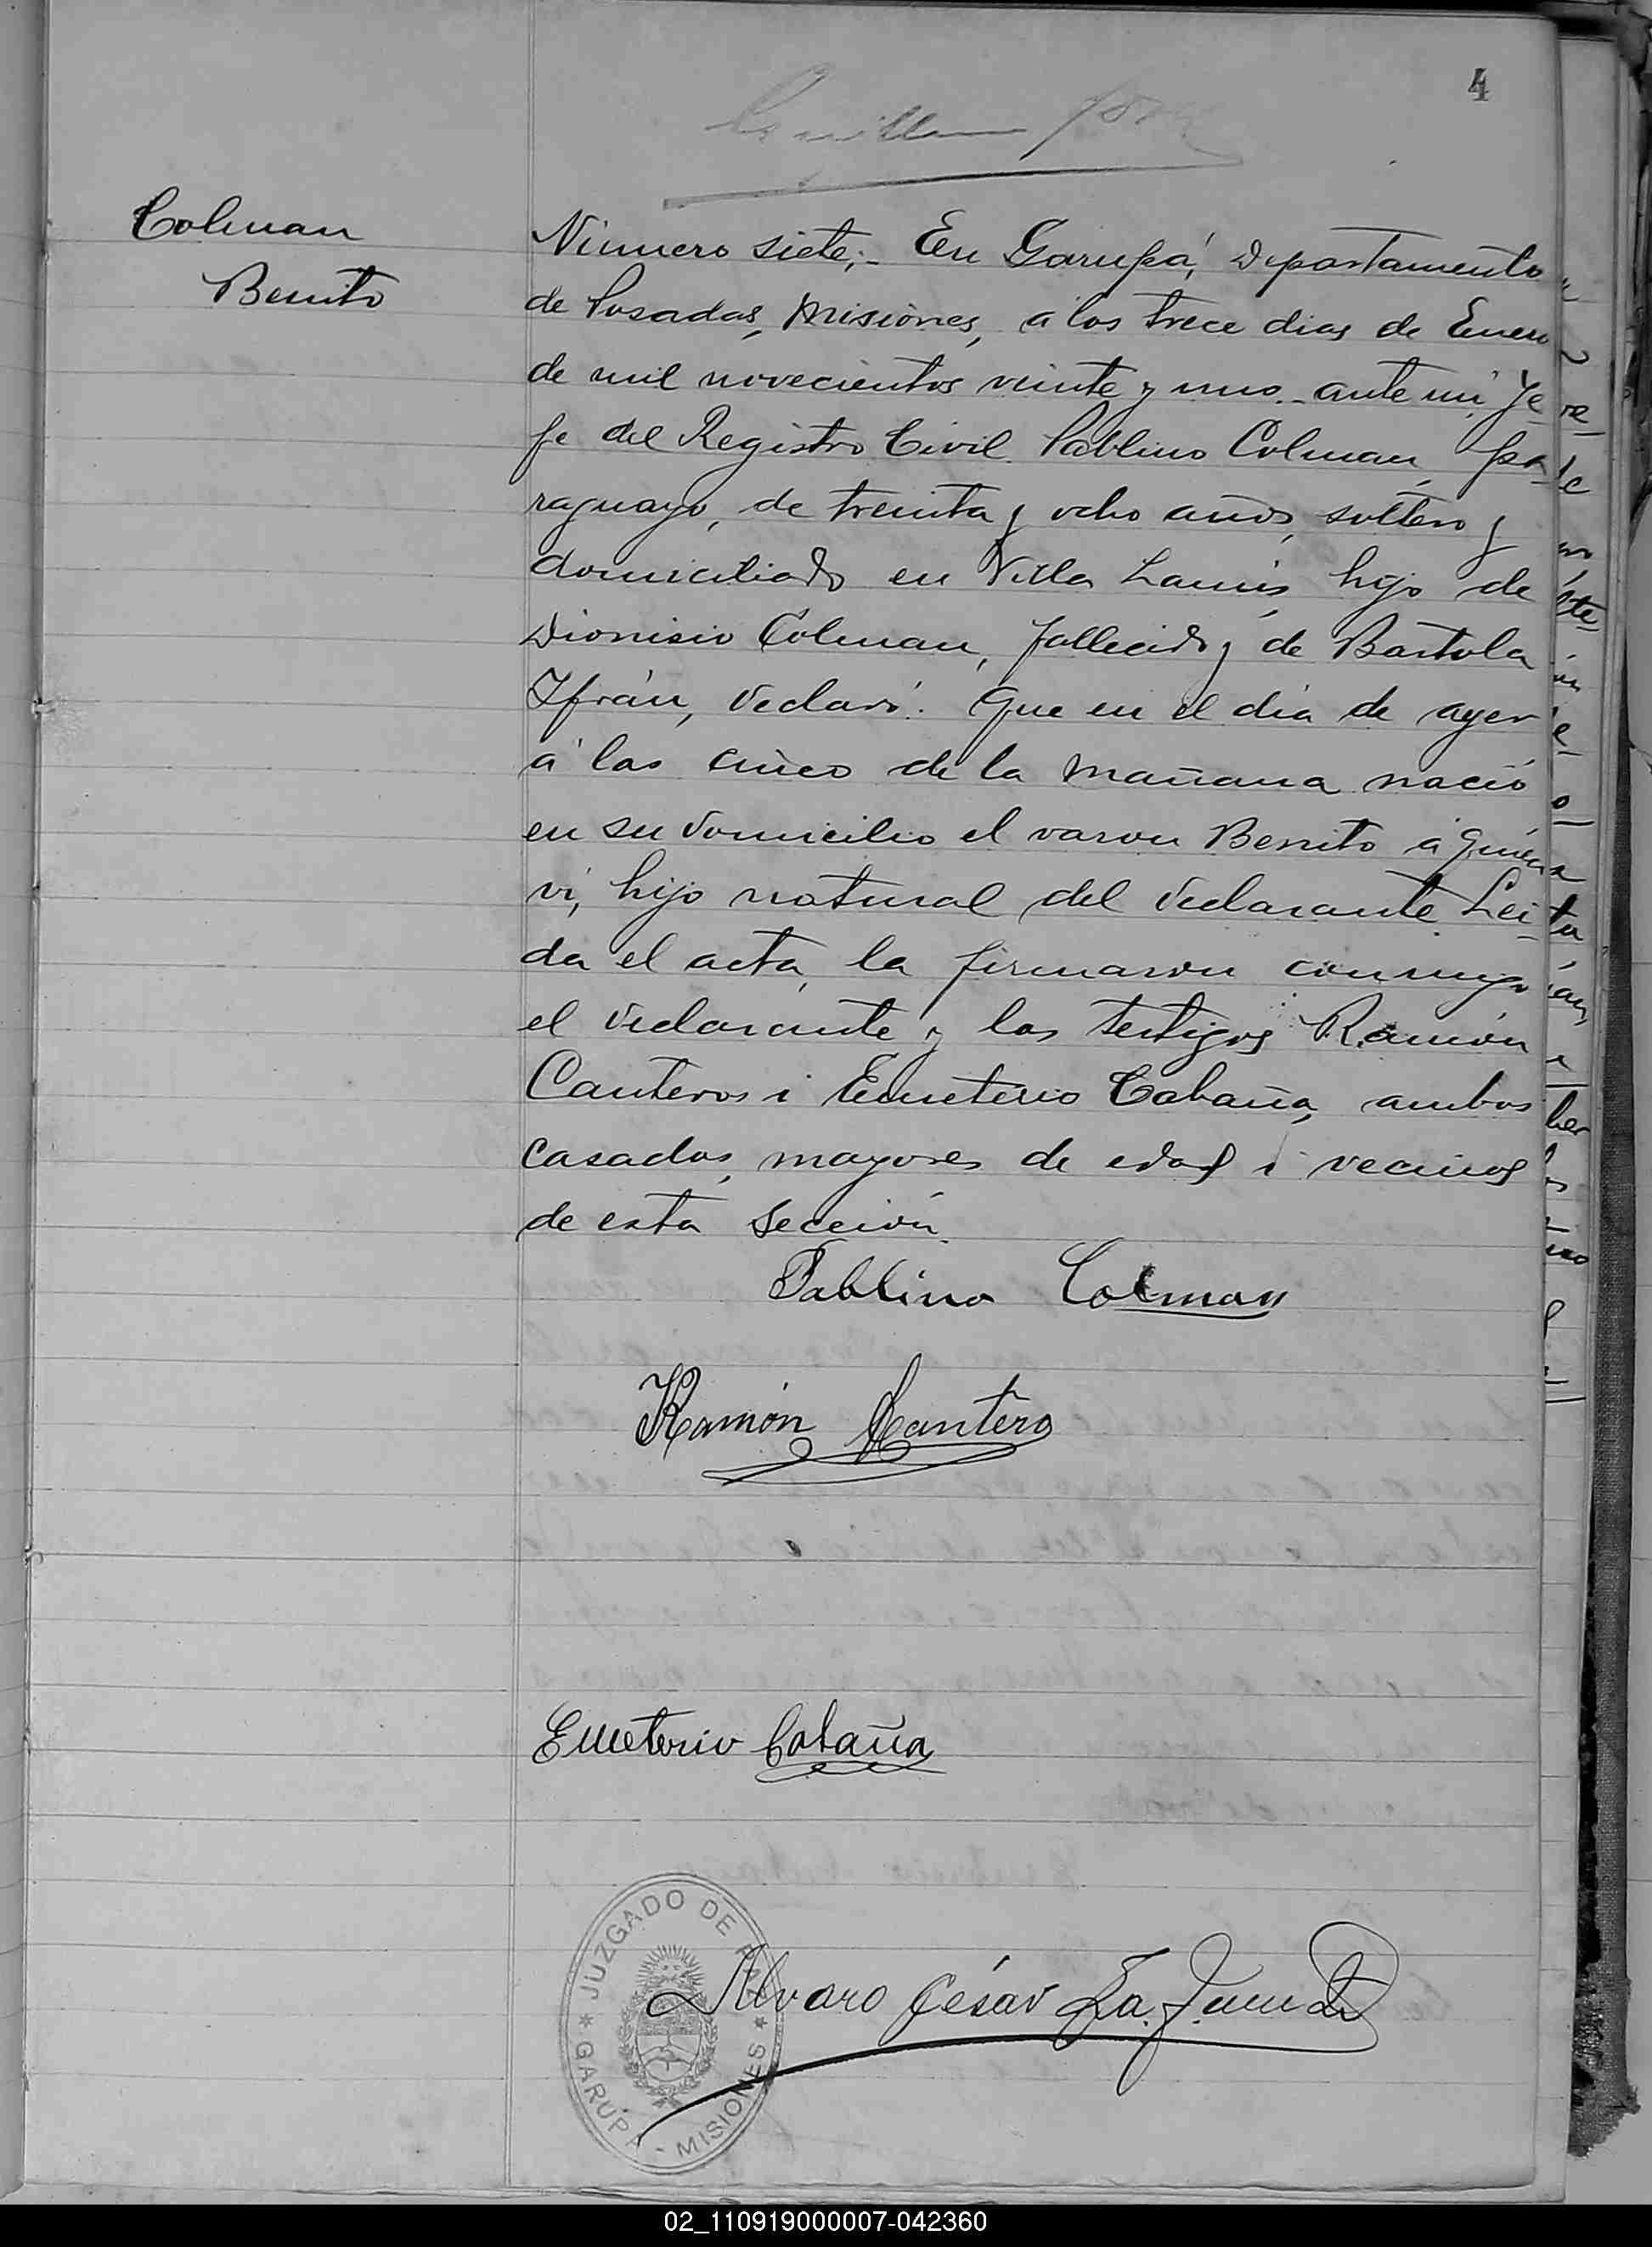 4
Colman
Benito
Número siete;- En Garupá, Departamento
de Posadas, Misiones, a los trece dias de Enero
de mil novecientos veinte y uno.- ante mi Je
fe del Registro Civil. Pablino Colman, pa-
raguayo, de treinta y ocho años, soltero y
domiciliado en Villa Lanús, hijo de
Dionisio Colman, fallecido y de Bartola
Ifrán, declaró: Que en el dia de ayer
á las cinco de la mañana nació
en su domicilio el varon Benito á quien
ví, hijo natural del declarante. Lei-
da el acta, la firmaron conmigo
el declarante y los testigos Ramón
Canteros i Emeterio Cabaña, ambos
casados, mayores de edad i vecinos
de esta sección.
Pablino Colman
Ramón Cantero
Emeterio Cabaña
JUZGADO DE PAZ
Alvaro César
* GARUPA - MISIONES *
02_110919000007-042360